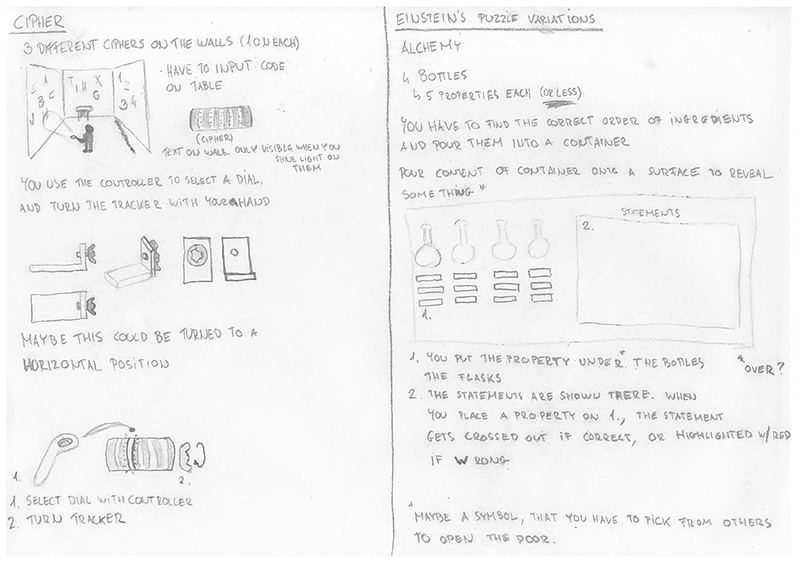 CIPHER
3 DIFFERENT CIPHERS ON THE WALLS (1 ON EACH)
• HAVE TO INPUT CODE
ON TABLE
(CIPHER)
TEXT ON WALL ONLY VISIBLE WHEN YOU
SHINE LIGHT ON
THEM
YOU USE THE CONTROLLER TO SELECT A DIAL,
AND TURN THE TRACKER WITH YOUR HAND
MAYBE THIS COULD BE TURNED TO A
HORIZONTAL POSITION
1.
2.
1. SELECT DIAL WITH CONTROLLER
2. TURN TRACKER
EINSTEIN'S PUZZLE VARIATIONS
ALCHEMY
4 BOTTLES
↳ 5 PROPERTIES EACH (OR LESS)
YOU HAVE TO FIND THE CORRECT ORDER OF INGREDIENTS
AND POUR THEM INTO A CONTAINER
POUR CONTENT OF CONTAINER ONTO A SURFACE TO REVEAL
SOMETHING *
STATEMENTS
2.
1.
1. YOU PUT THE PROPERTY UNDER* THE BOTTLES
THE FLASKS
* OVER?
2. THE STATEMENTS ARE SHOWN THERE. WHEN
YOU PLACE A PROPERTY ON 1., THE STATEMENT
GETS CROSSED OUT IF CORRECT, OR HIGHLIGHTED W/RED
IF WRONG
* MAYBE A SYMBOL, THAT YOU HAVE TO PICK FROM OTHERS
TO OPEN THE DOOR.